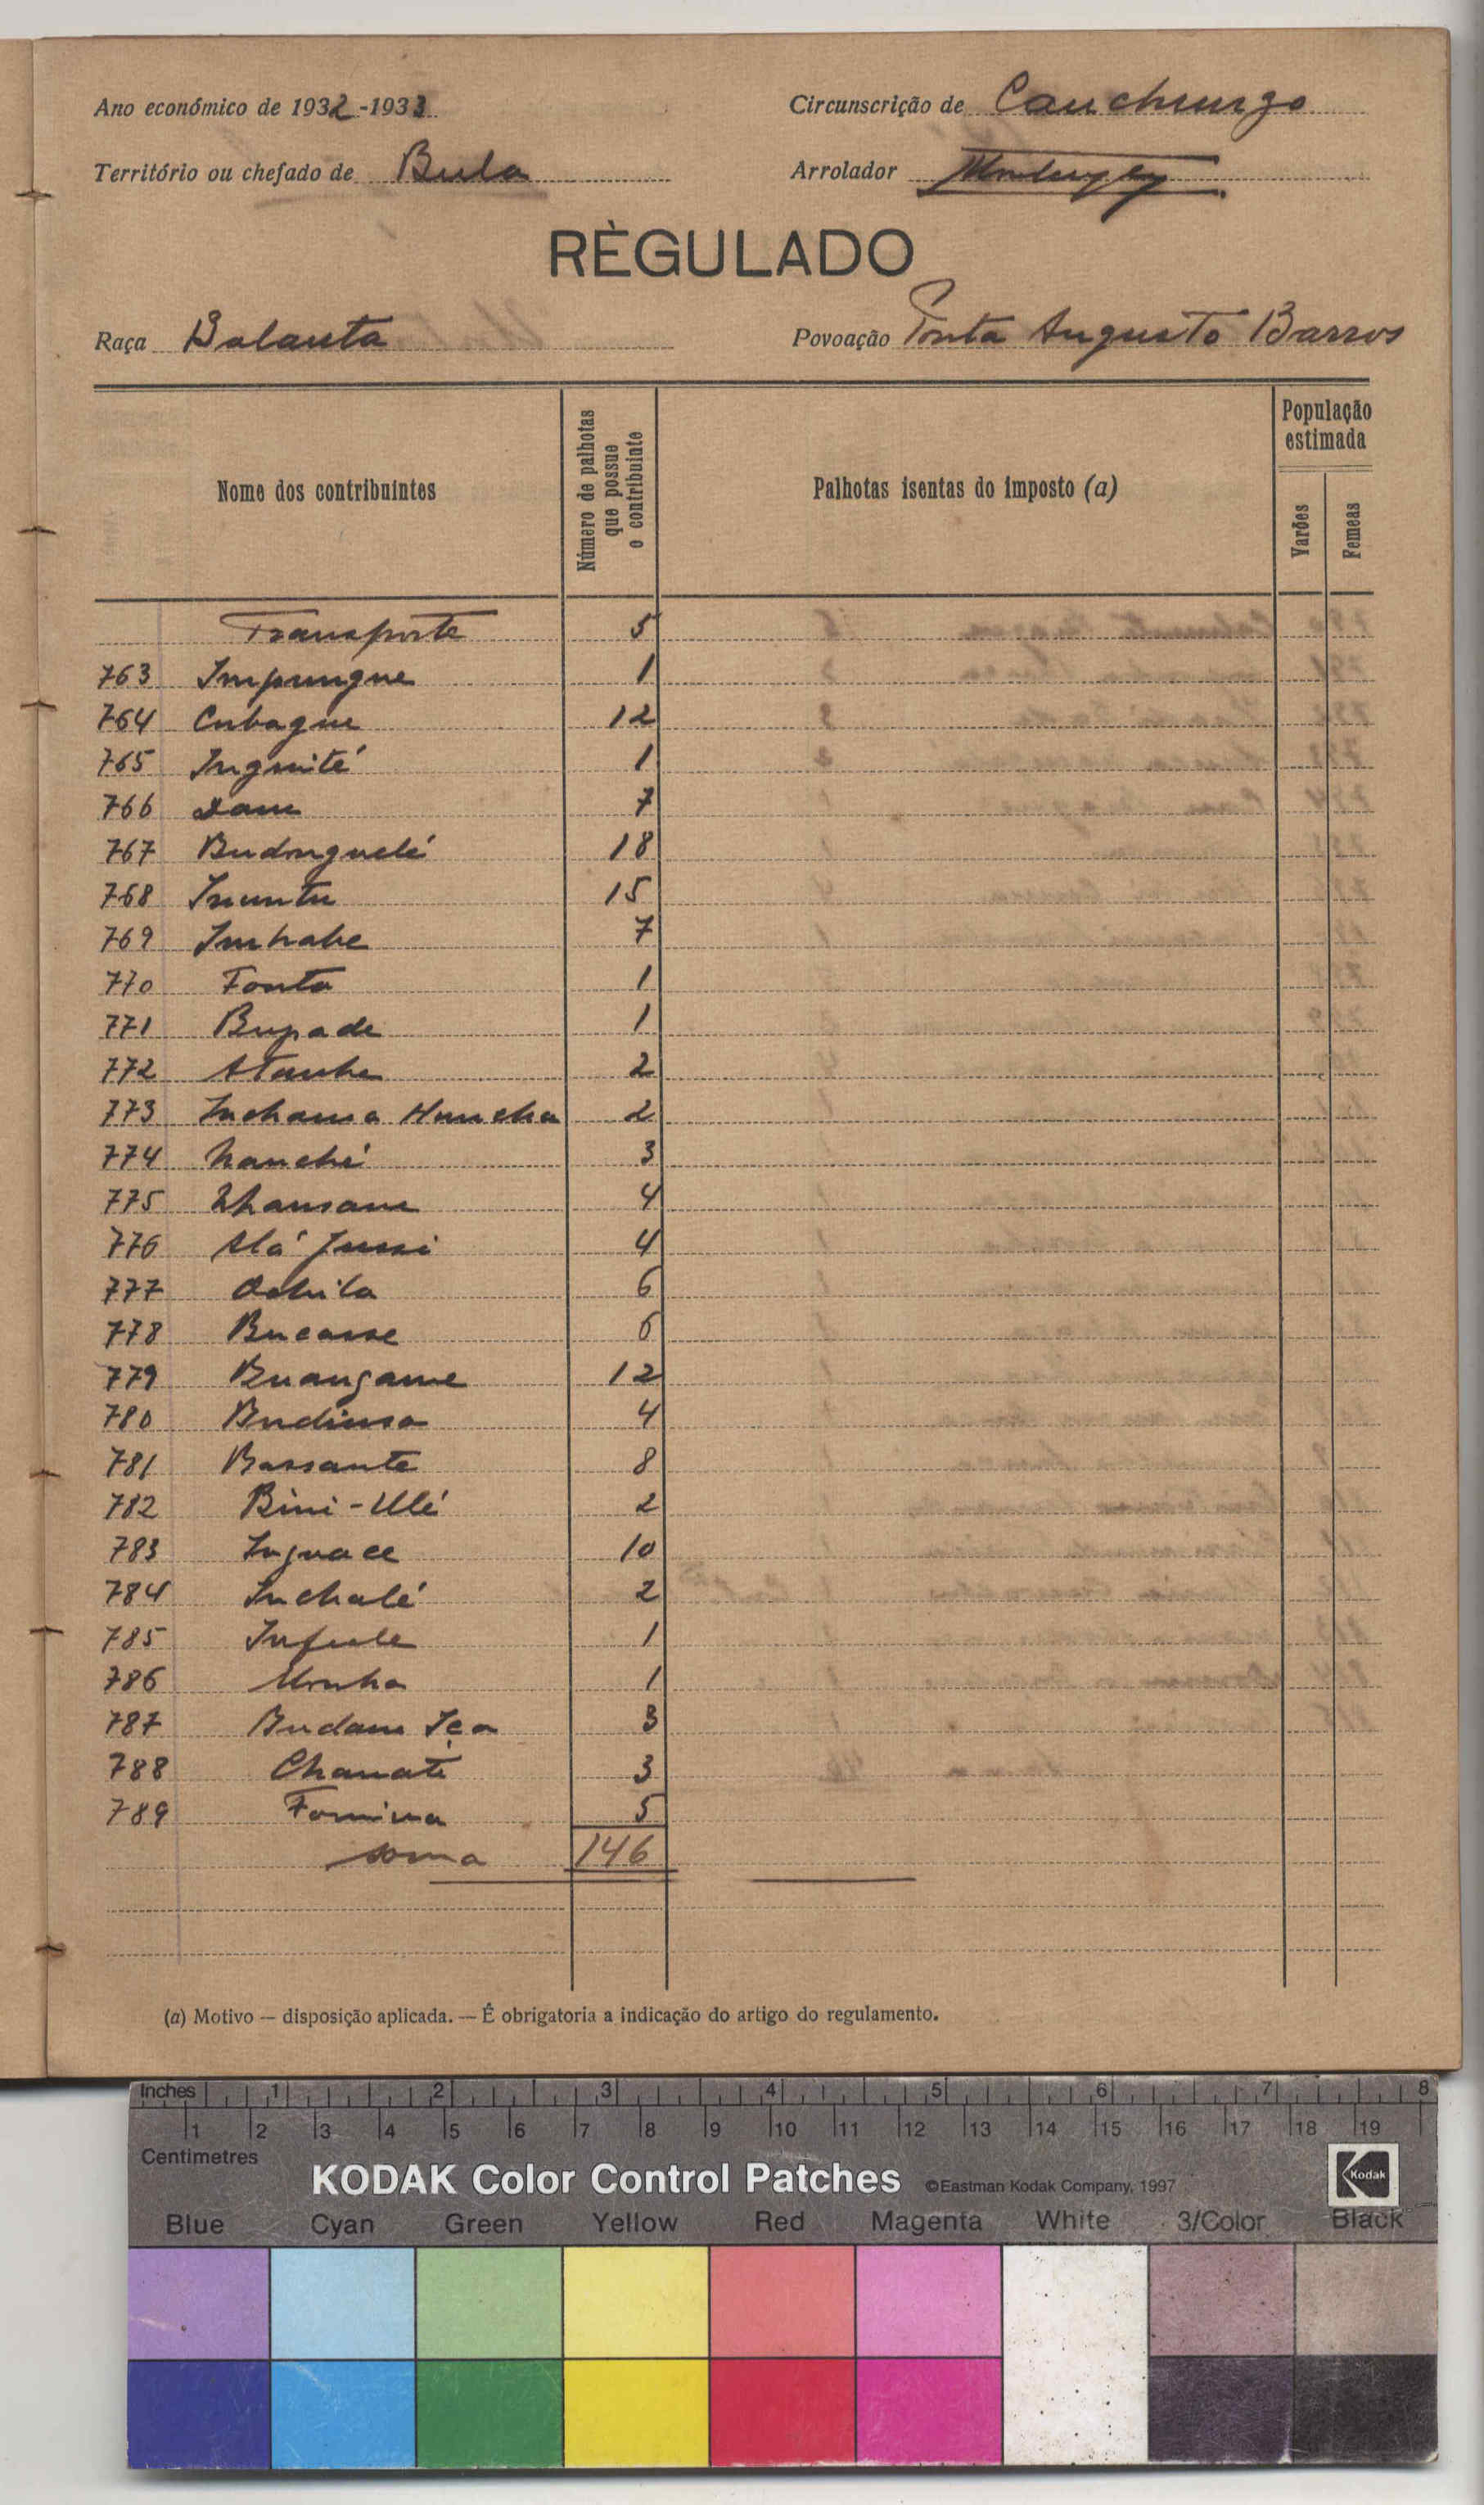 Ano económico de 1932-1933
Circunscrição de Canchungo
Território ou chefado de Bula
Arrolador
RÈGULADO
Raça Balanta
Povoação Ponta Augusto Barros
Nome dos contribuintes
Número de palhotas que possue o contribuinte
Palhotas isentas do imposto (a)
População estimada
Varões
Femeas
Transporte 5
763 Impungue 1
764 Cubague 12
765 Inguité 1
766 Dam 7
767 Budonguelé 18
768 Inuntu 15
769 Inhabe 7
770 Fonta 1
771 Bupade 1
772 2
773 2
774 Nanché 3
775 4
776 4
777 6
778 Bucasse 6
779 Buangame 12
780 Budinsa 4
781 Bassante 8
782 Bini-Ulé 2
783 Inguace 10
784 Inchalé 2
785 1
786 1
787 Budam Iça 3
788 Chanate 3
789 Fomina 5
soma 146
(a) Motivo — disposição aplicada. — É obrigatoria a indicação do artigo do regulamento.
Inches 1 2 3 4 5 6 7 8
1 2 3 4 5 6 7 8 9 10 11 12 13 14 15 16 17 18 19
Centimetres
KODAK Color Control Patches ©Eastman Kodak Company, 1997 Kodak
Blue Cyan Green Yellow Red Magenta White 3/Color Black